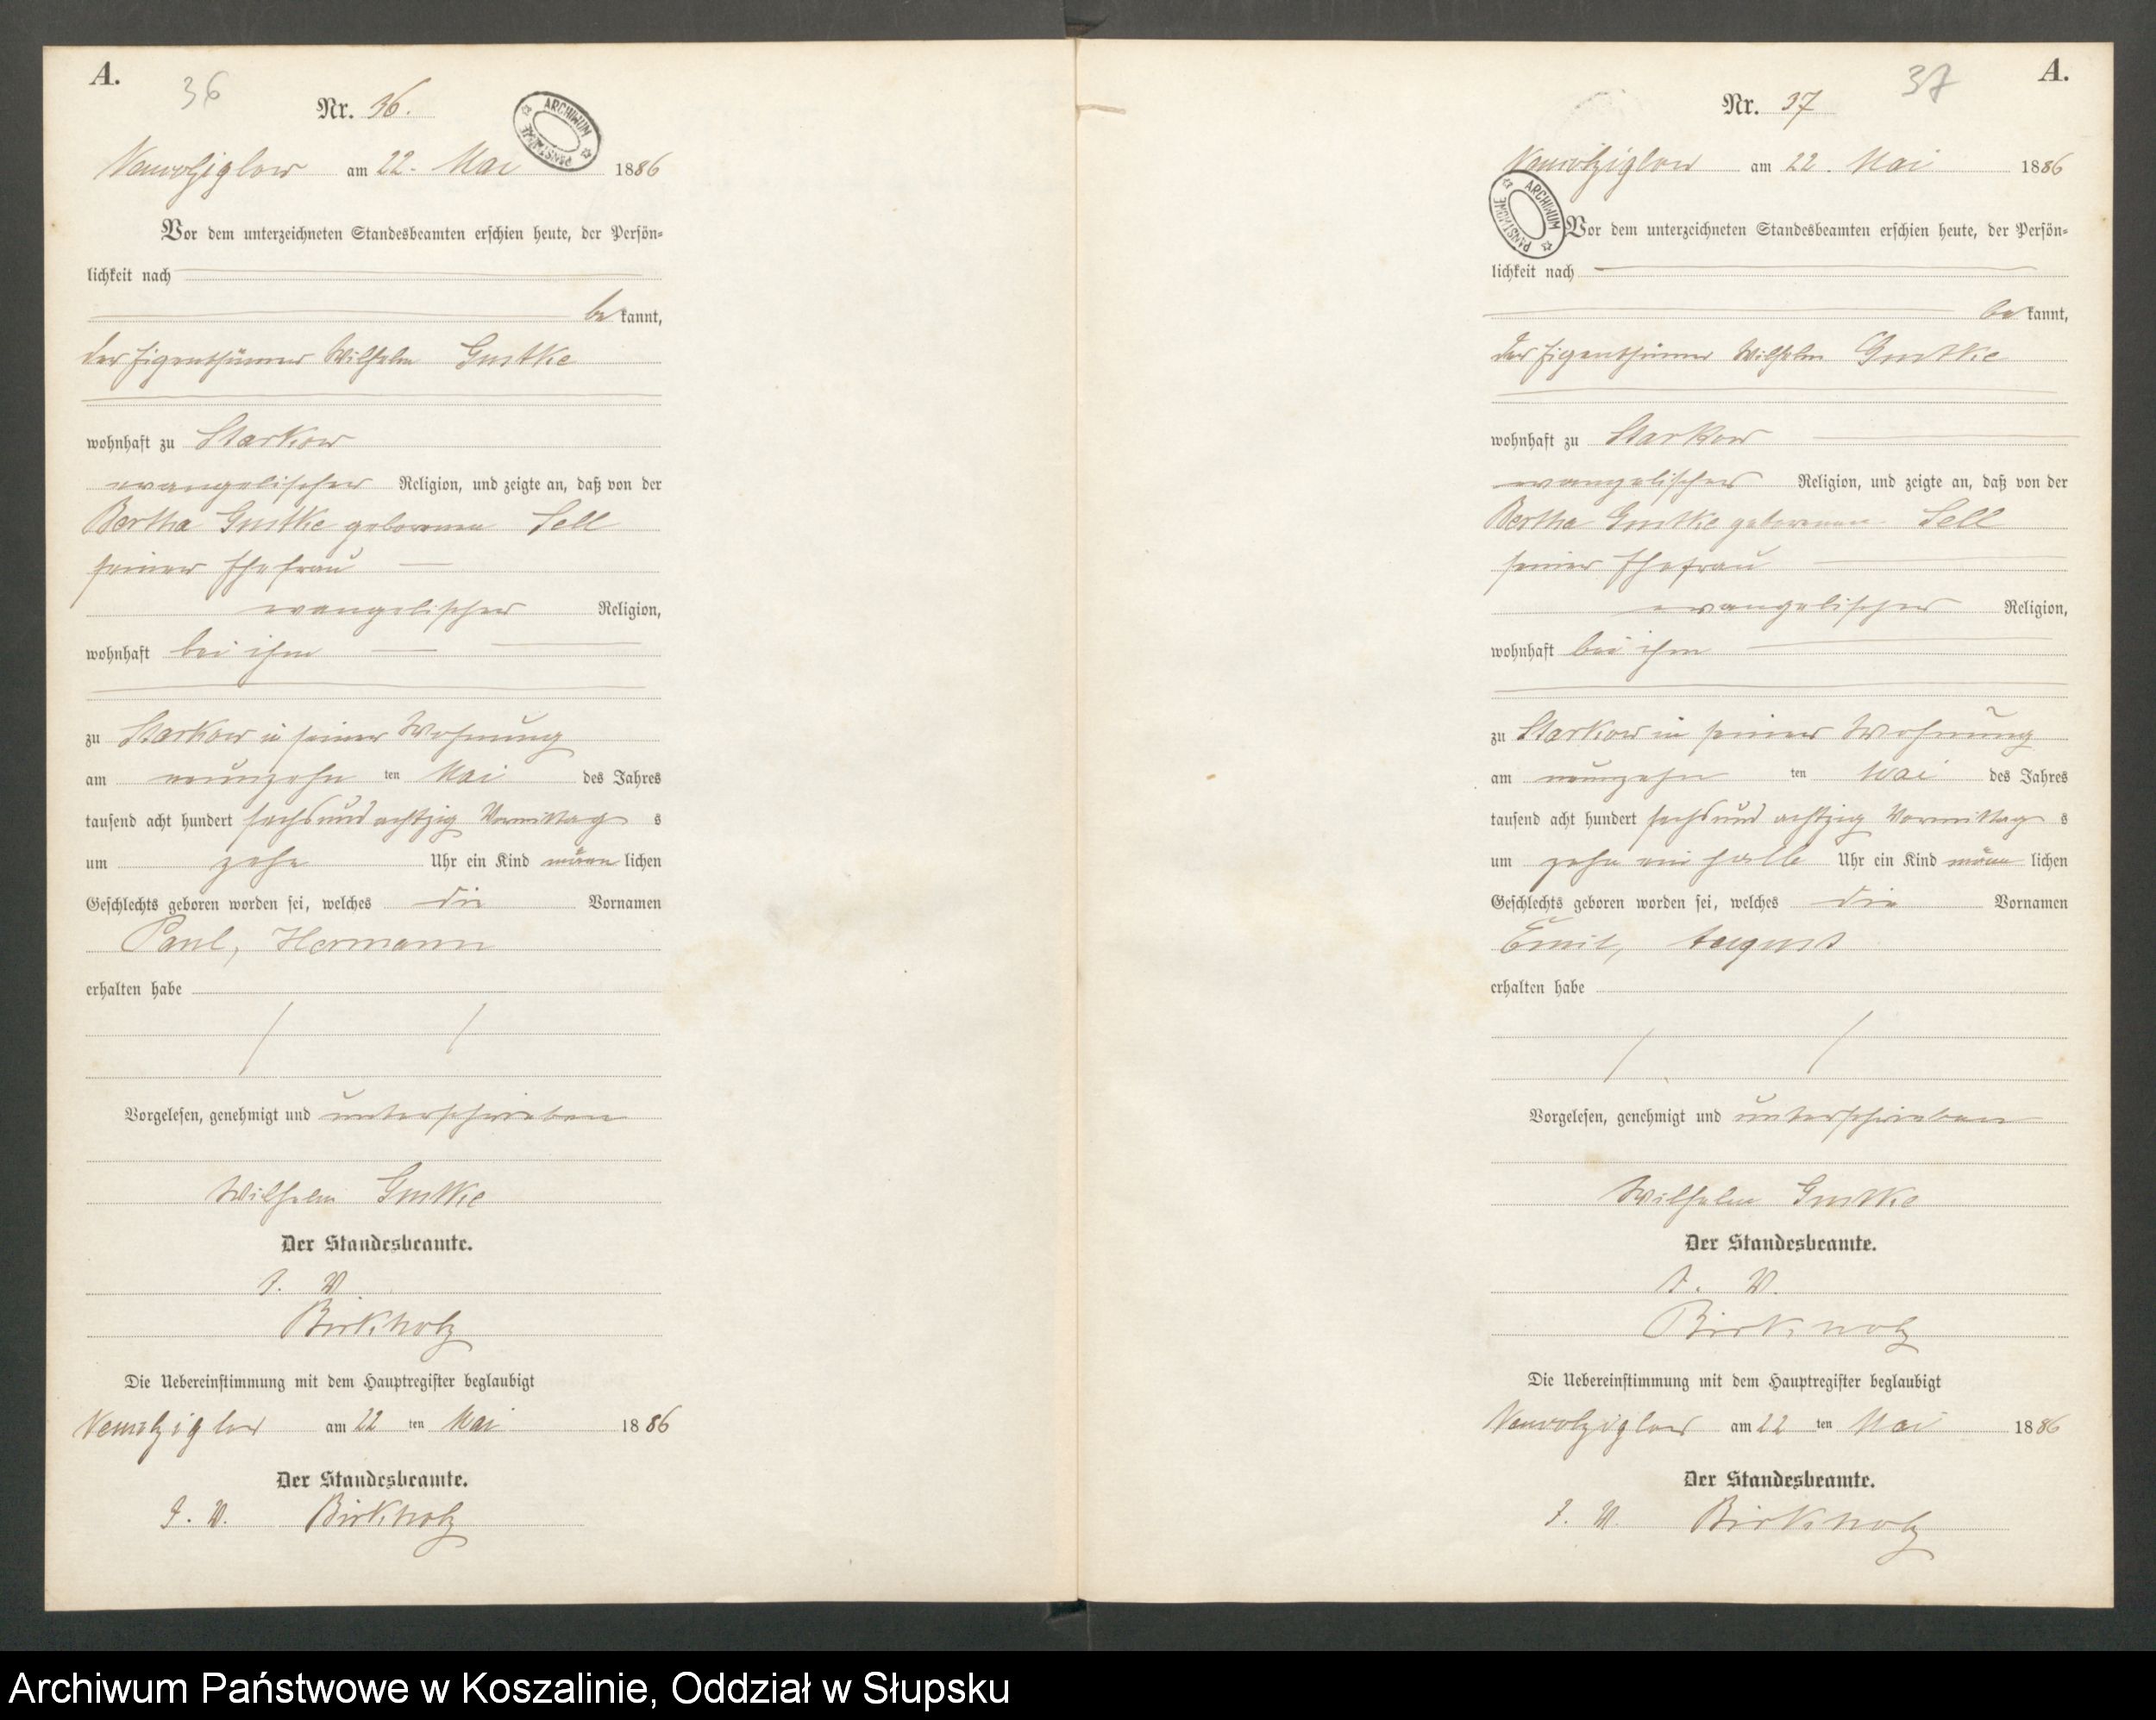 A.
36
Nr. 36.
ARCHIWUM PAŃSTWOWE
Neuwolziglow am 22. Mai 1886
Vor dem unterzeichneten Standesbeamten erschien heute, der Persön-
lichkeit nach
bekannt,
der Eigenthümer Wilhelm Gustke
wohnhaft zu Starkow
evangelischer Religion, und zeigte an, daß von der
Bertha Gustke geborenen Sell
seiner Ehefrau
evangelischer Religion,
wohnhaft bei ihm
zu Starkow in seiner Wohnung
am neunzehn ten Mai des Jahres
tausend acht hundert sechs und achtzig Vormittag s
um zehn Uhr ein Kind männlichen
Geschlechts geboren worden sei, welches die Vornamen
Paul, Hermann
erhalten habe
Vorgelesen, genehmigt und unterschrieben
Wilhelm Gustke
Der Standesbeamte.
I. V.
Birkholz
Die Uebereinstimmung mit dem Hauptregister beglaubigt
Neuwolziglow am 22 ten Mai 1886
Der Standesbeamte.
I. V. Birkholz
A.
37
Nr. 37
Neuwolziglow am 22. Mai 1886
ARCHIWUM PAŃSTWOWE
Vor dem unterzeichneten Standesbeamten erschien heute, der Persön-
lichkeit nach
bekannt,
der Eigenthümer Wilhelm Gustke
wohnhaft zu Starkow
evangelischer Religion, und zeigte an, daß von der
Bertha Gustke geborenen Sell
seiner Ehefrau
evangelischer Religion,
wohnhaft bei ihm
zu Starkow in seiner Wohnung
am neunzehn ten Mai des Jahres
tausend acht hundert sechs und achtzig Vormittag s
um zehn ein halb Uhr ein Kind männ lichen
Geschlechts geboren worden sei, welches die Vornamen
Emil, August
erhalten habe
Vorgelesen, genehmigt und unterschrieben
Wilhelm Gustke
Der Standesbeamte.
I. V.
Birkholz
Die Uebereinstimmung mit dem Hauptregister beglaubigt
Neuwolziglow am 22 ten Mai 1886
Der Standesbeamte.
I. V. Birkholz
Archiwum Państwowe w Koszalinie, Oddział w Słupsku